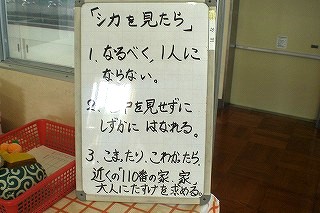 「シカを見たら」
1、なるべく,1人に
ならない。
2、を見せずに
しずかに はなれる。
3、こまったり、こわかったら、
近くの"110番の家、家、
大人にたすけを求める。